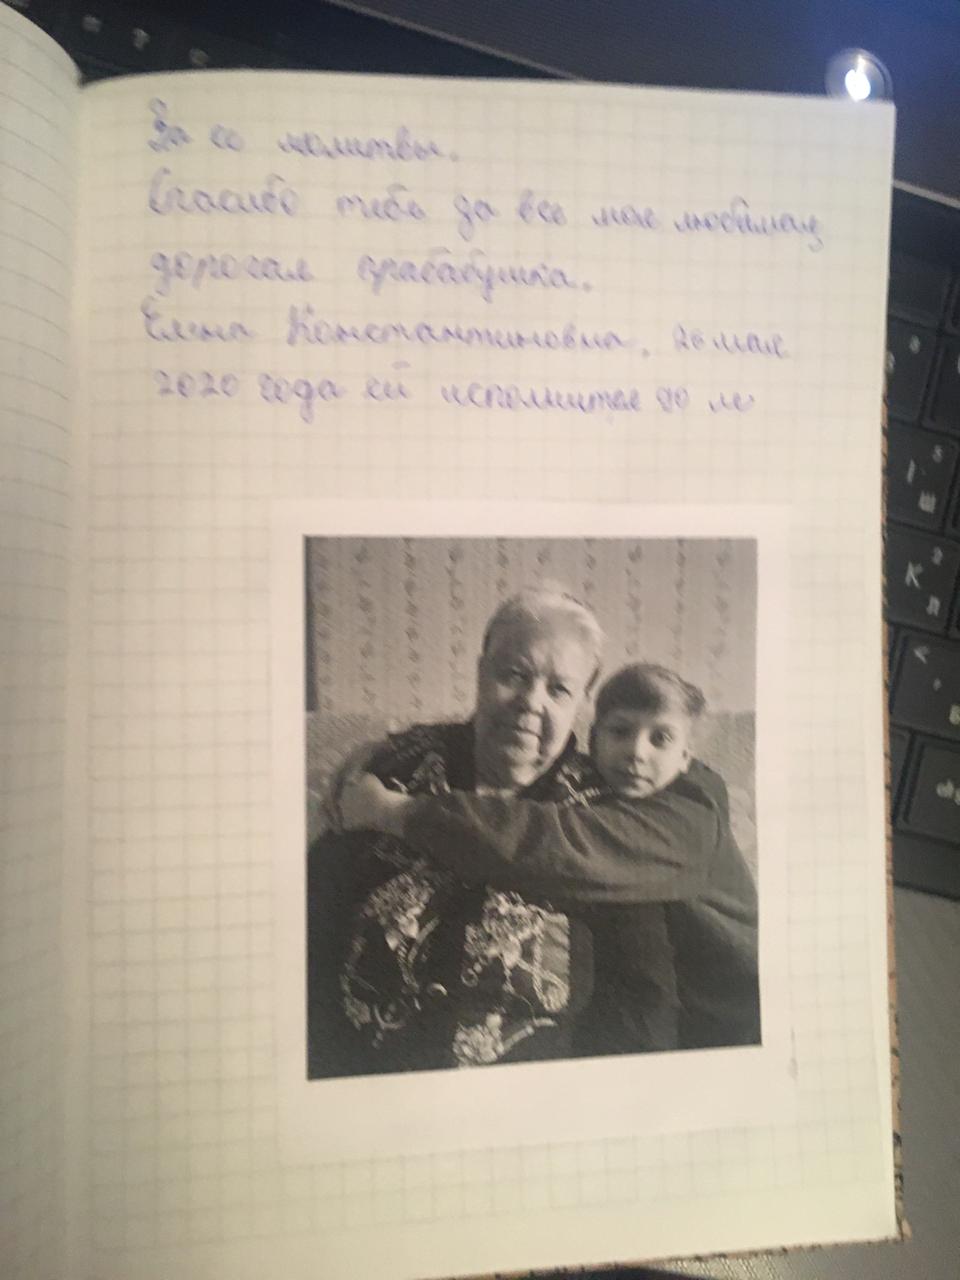 За ее молитвы.
Спасибо тебе за все моя любимая,
дорогая прабабушка.
Елена Константиновна. 26 мая
2020 года ей исполнится 90 ле
5
Ш
2
К
Л
<